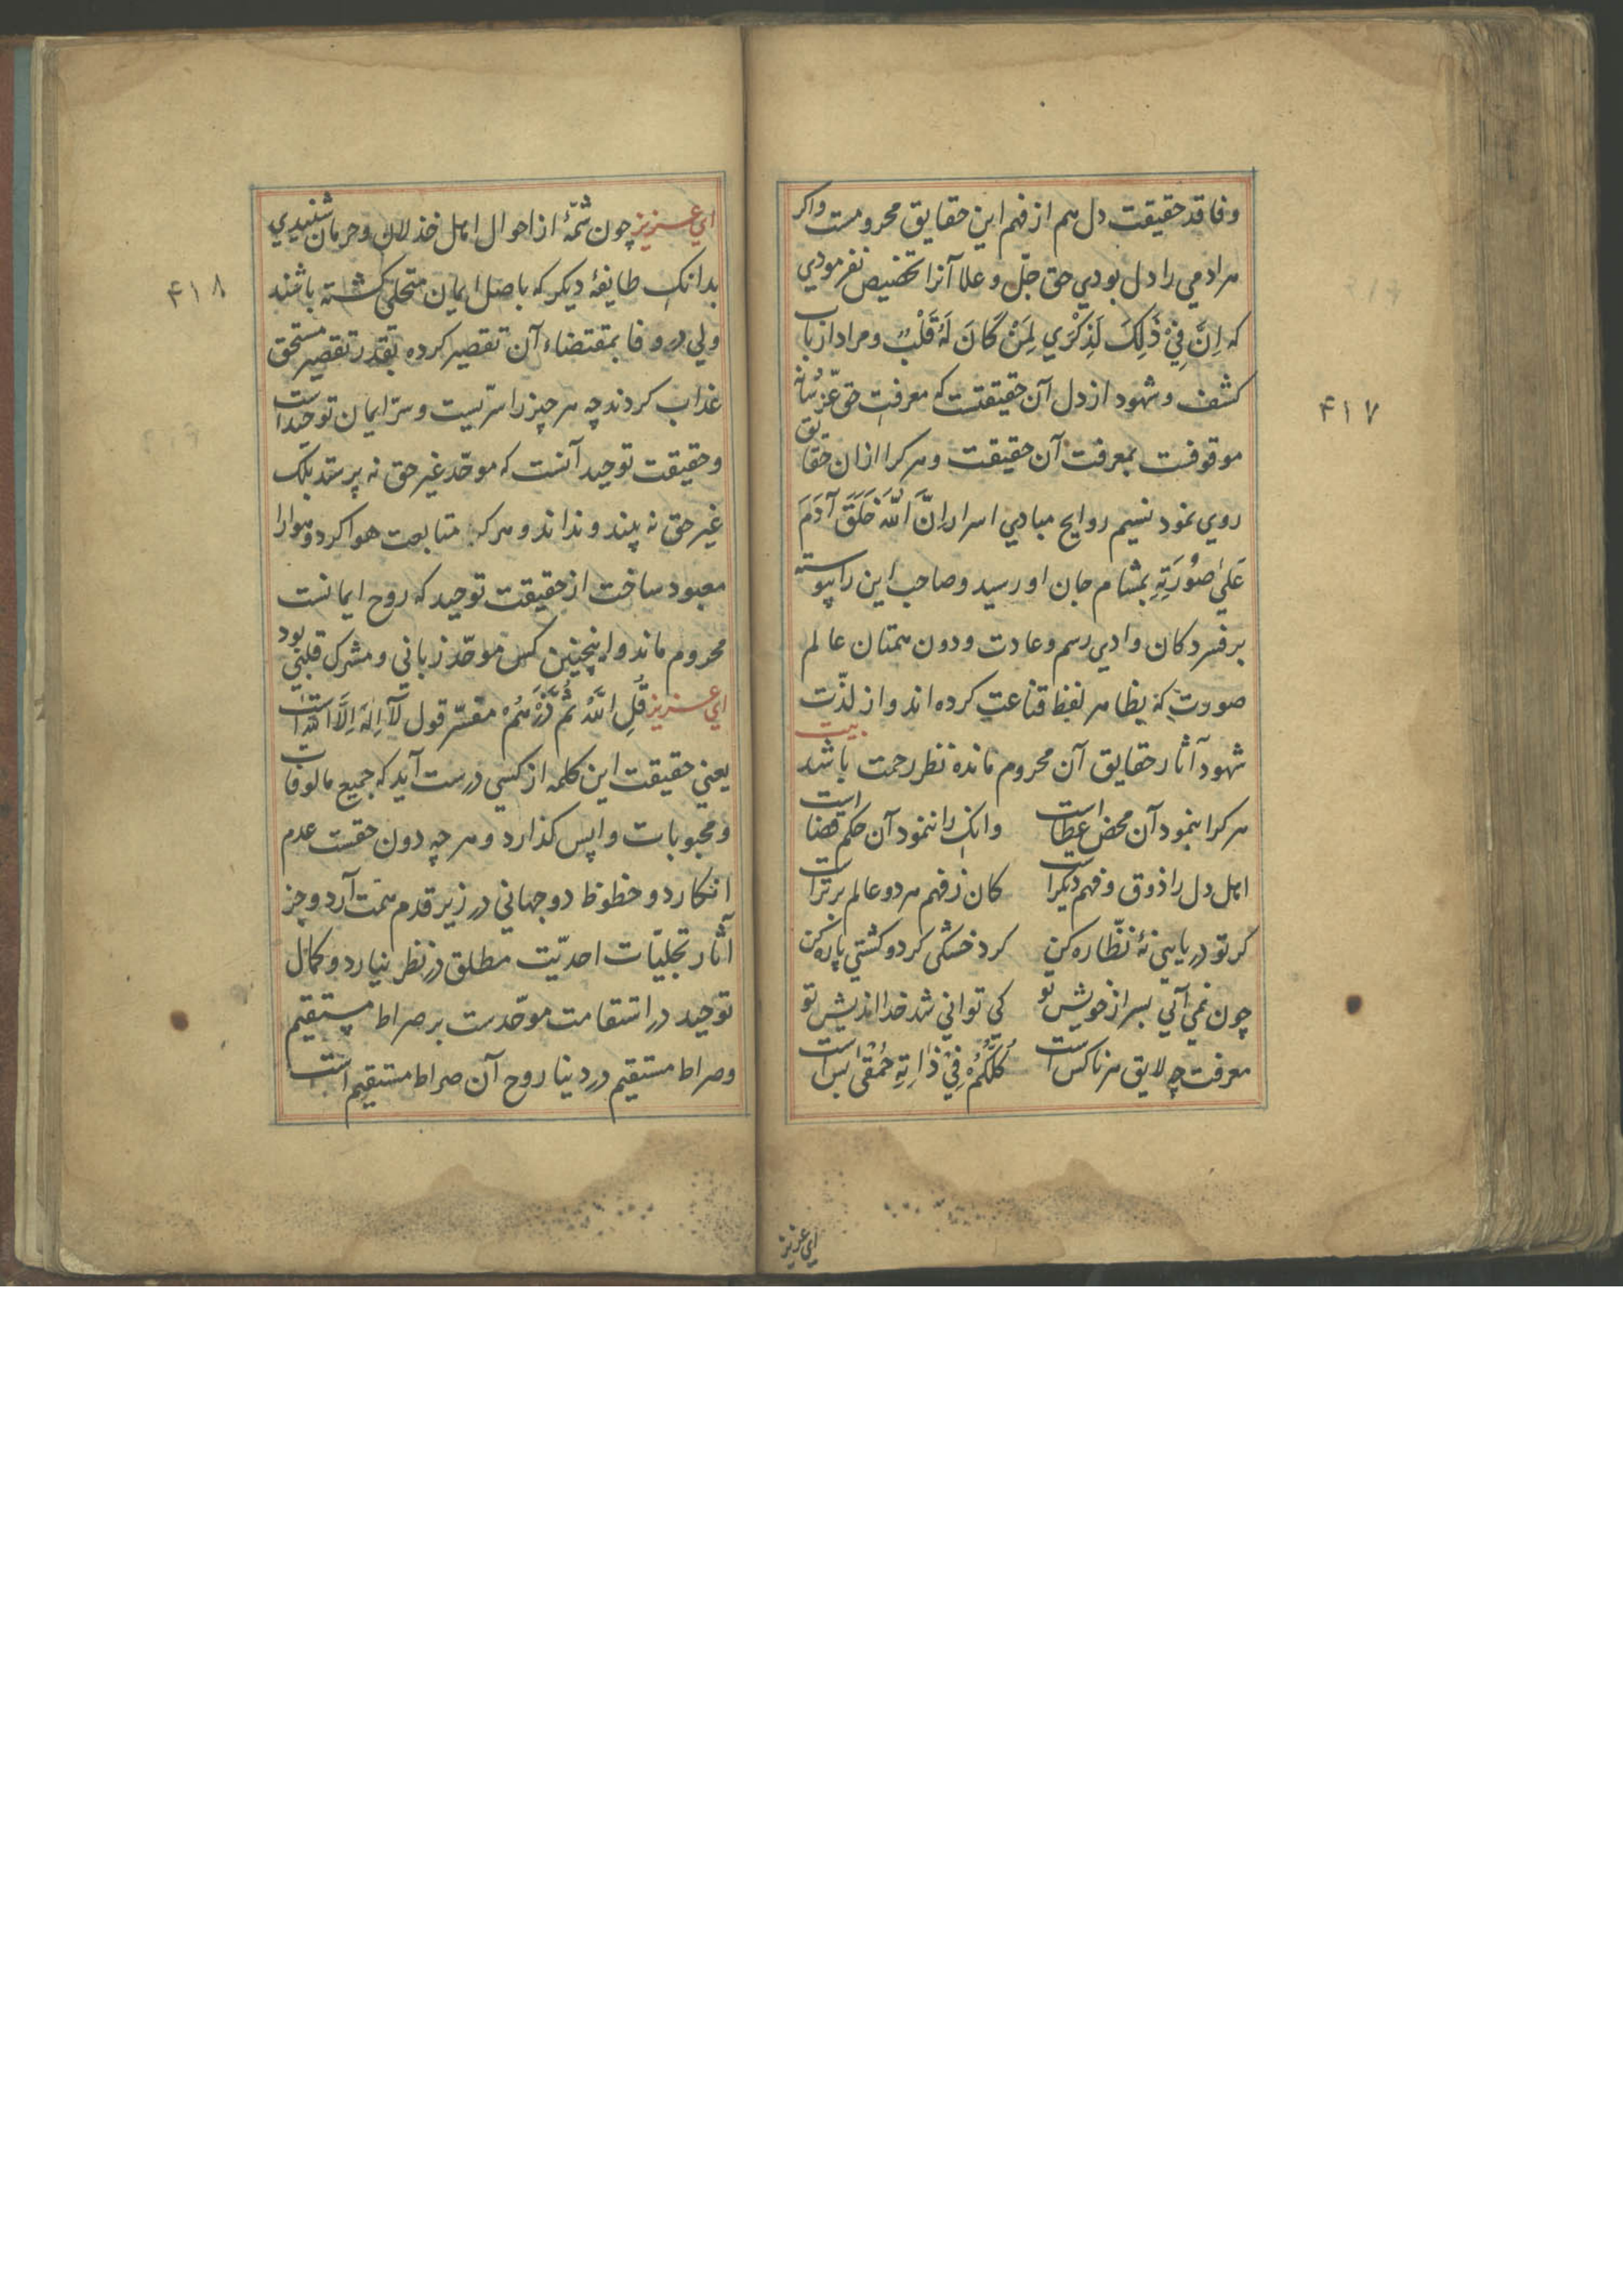 وفاقد حقیقت دل هم از فهم این حقایق محرومست واکر
هرادمی را دل بودی حق جلّ وعلا آنرا تخصیص نفرمودی
که اِنَّ فِیْ ذٰلِکَ لَذِکْرٰی لِمَنْ کَانَ لَهُ قَلْبٌ ومراد ارباب
کشف وشهود از دل آن حقیقتست که معرفت حق عزّ شانه
موقوفست بمعرفت آن حقیقت وهرکرا ازان حقایق
روی نمود نسیم روایح مبادی اسرار اِنَّ اللّٰهَ خَلَقَ آدَمَ
عَلیٰ صُوْرَتِهِ بمشام جان او رسید وصاحب این را پیوسته
بر فسردکان وادی رسم وعادت ودون همتان عالم
صورت که بظاهر لفظ قناعت کرده اند واز لذّت
شهود آثار حقایق آن محروم مانده نظر رحمت باشد بیت
هرکرا بنمود آن محض عطاست وانک را ننمود آن حکم قضاست
اهل دل را ذوق وفهم دیکر است کان ز فهم هر دو عالم برتر است
کر تو دریا بی نهٔ نظّاره کن کرد خشکی کرد وکشتی پاره کن
چون نمی آئی بسر از خویش تو کی توانی شد خدا اندیش تو
معرفت چه لایق هر ناکس است کُلُّکُمْ فِیْ ذَاتِهِ حُمْقٰی بس است
ای عزیز
۴۱۷
ای عزیز چون شمّهٔ از احوال اهل خذلان وحرمان شنیدی
بدانک طایفهٔ دیکر که باصل ایمان متحلی کشته باشند
ولی در وفا بمقتضاء آن تقصیر کرده بقدر تقصیر مستحق
عذاب کردند چه هر چیز را سرّیست وسرّ ایمان توحید است
وحقیقت توحید آنست که موحّد غیر حق نه پرستد بلک
غیر حق نه بیند ونداند وهرکه متابعت هوا کرد وهوا را
معبود ساخت از حقیقت توحید که روح ایمانست
محروم ماند واینچنین کس موحّد زبانی ومشرک قلبی بود
ای عزیز قُلِ اللّٰهُ ثُمَّ ذَرْهُمْ مفسّر قول لَآ اِلٰهَ اِلَّا اللّٰه است
یعنی حقیقت این کلمه از کسی درست آید که جمیع مالوفات
ومحبوبات واپس کذارد وهر چه دون حقست عدم
انکارد وحظوظ دوجهانی در زیر قدم همّت آرد وجز
آثار تجلیّات احدیّت مطلق در نظر نیارد وکمال
توحید در استقامت موحّدست بر صراط مستقیم
وصراط مستقیم در دنیا روح آن صراط مستقیم است
۴۱۸